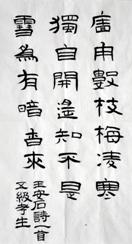 廧角數枝梅凌寒
獨自開遙知不是
雪為有暗香來
王安石詩一首
級学生